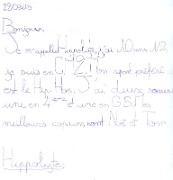 Bonjour
Je m'appelle Hippolyte, j'ai 10 ans 1/2
je suis en CM2. Mon sport préféré
est le Hip Hop. J'ai deux sœurs
une en 4ème et une en GS. Mes
meilleurs copains sont Noé et Tom.
Hippolyte